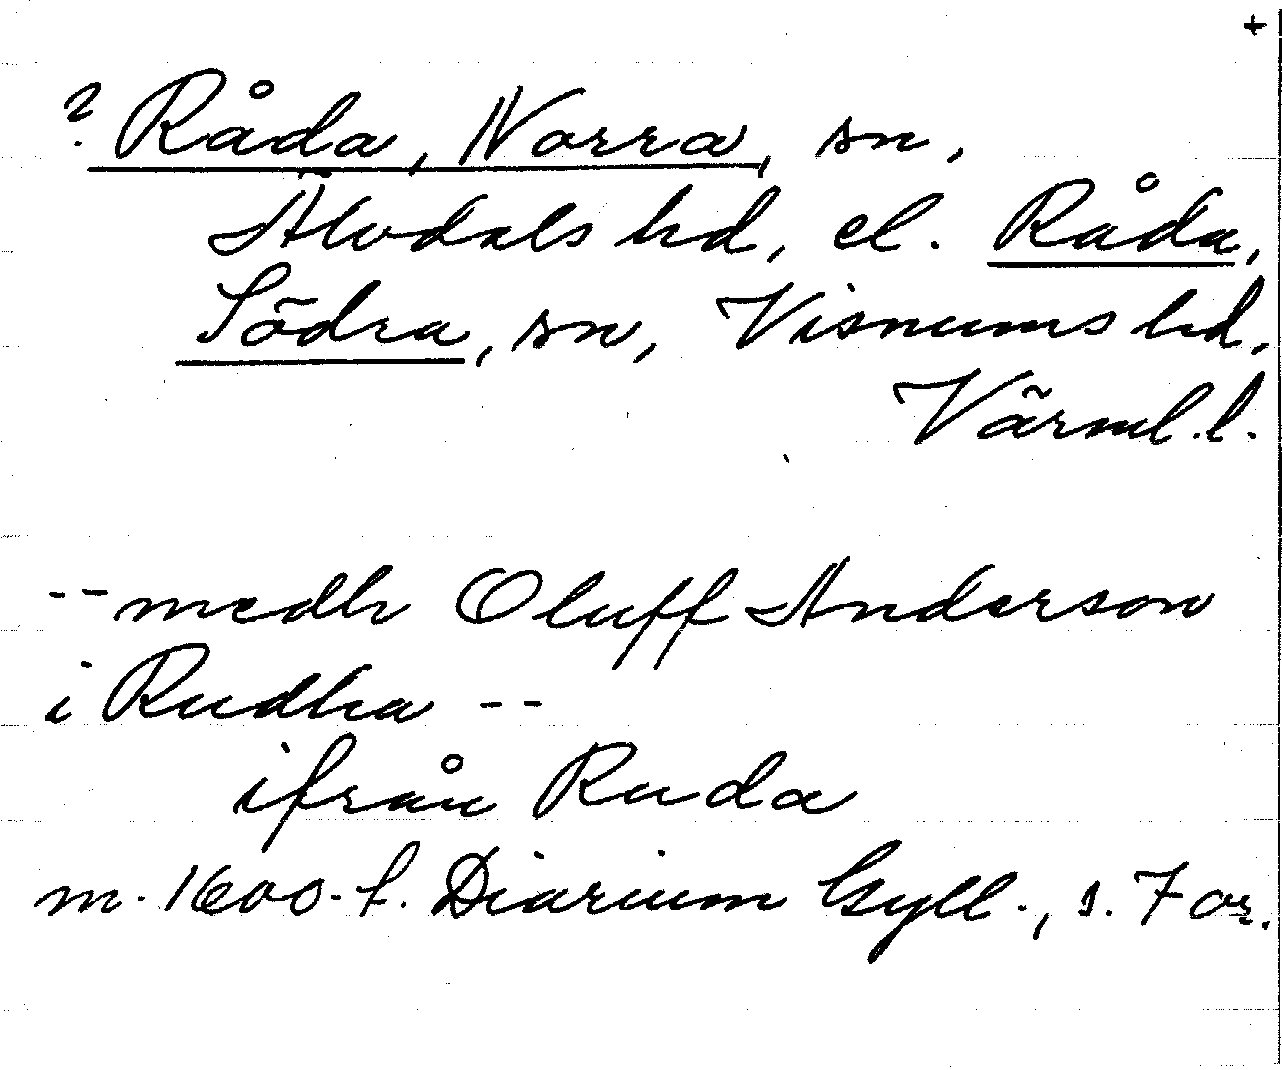 +
? Råda, Norra, sn,
Älvdals hd, el. Råda,
Södra, sn, Visnums hd,
Värml. l.
-- medh Oluff Anderson
i Rudha --
ifrån Ruda
m. 1600-t. Diarium Gyll., s. 7 or.